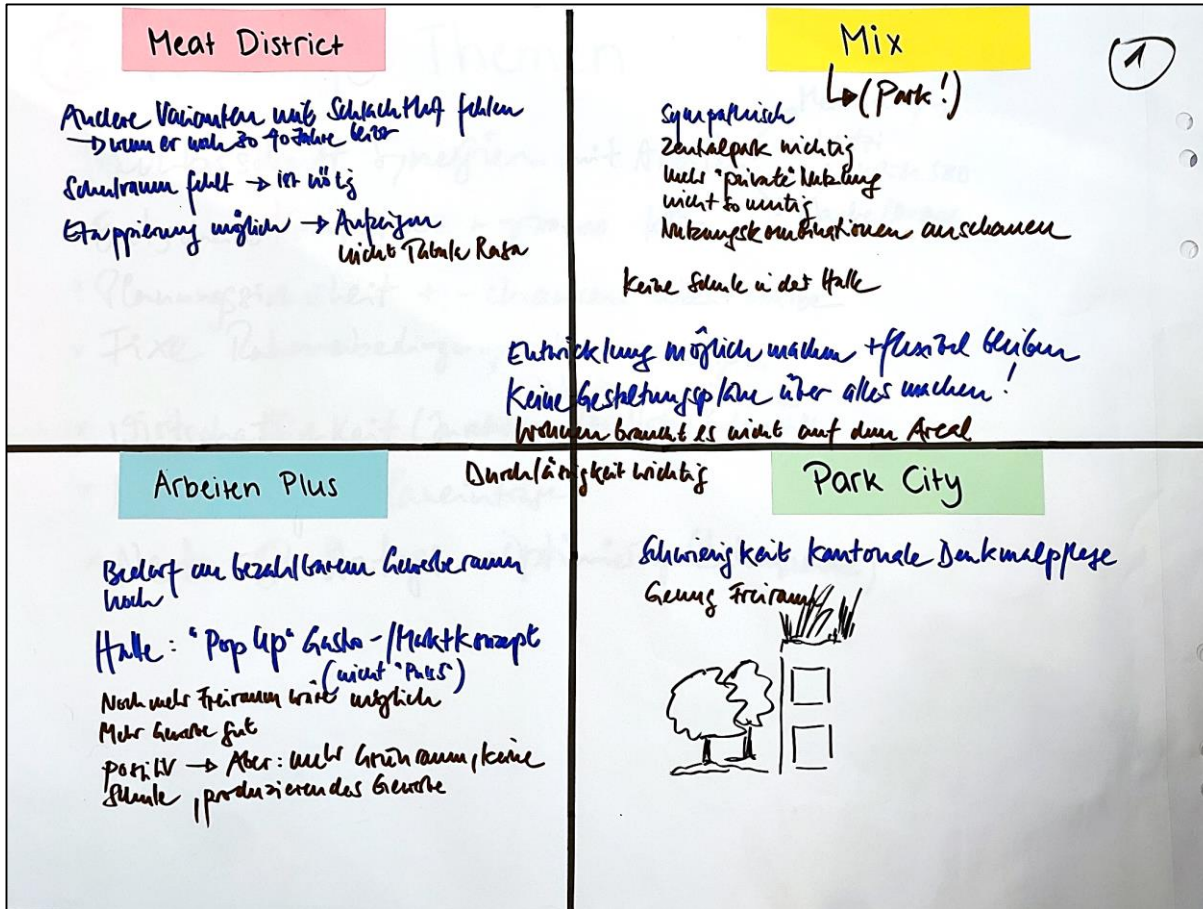 Meat District
Andere Varianten mit Schlachthof fehlen
→ wenn er noch 30-40 Jahre
Schulraum fehlt → ist nötig
Etappierung möglich → Aufzeigen
nicht Tabula Rasa
Mix
↳ (Park!)
1
Sympathisch
Zentralpark wichtig
mehr "private" Nutzung
nicht so wichtig
Nutzungskombinationen anschauen
Keine Schule in der Halle
Entwicklung möglich machen + flexibel bleiben
Keine Gestaltungspläne über alles machen!
Wohnen braucht es nicht auf dem Areal
Durchlässigkeit wichtig
Arbeiten Plus
Bedarf an bezahlbarem Gewerberaum
hoch
Halle: "Pop Up" Gastro-/Marktkonzept
(nicht)
Noch mehr Freiraum wäre möglich
Mehr Gewerbe gut
positiv → Aber: mehr Grünraum, keine
Schule, produzierendes Gewerbe
Park City
Schwierigkeit kantonale Denkmalpflege
Genug Freiraum